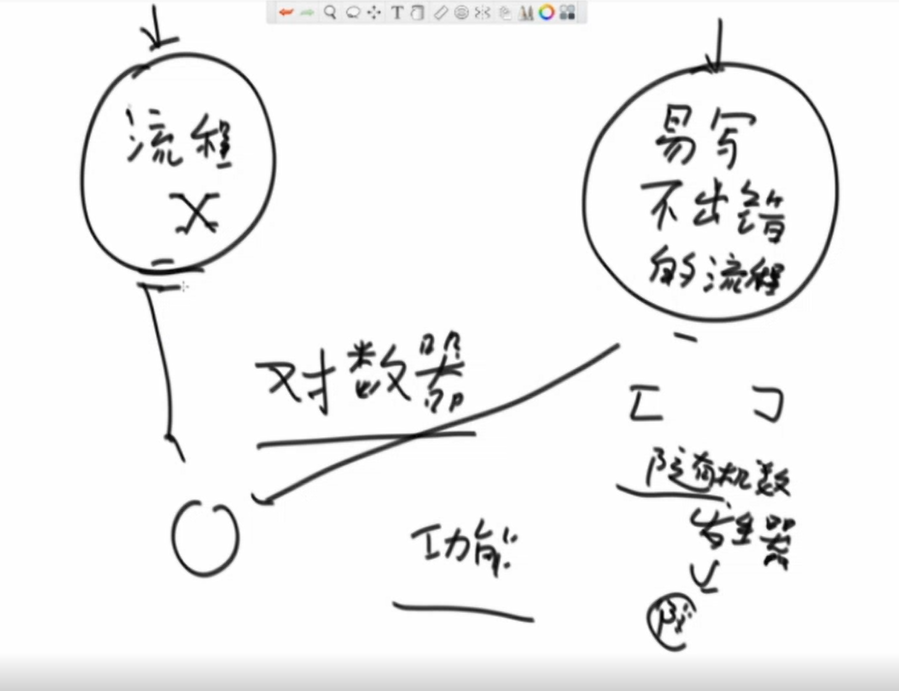 流程
X
易写
不出错
的流程
对数器
随机数
发生器
功能
随
T